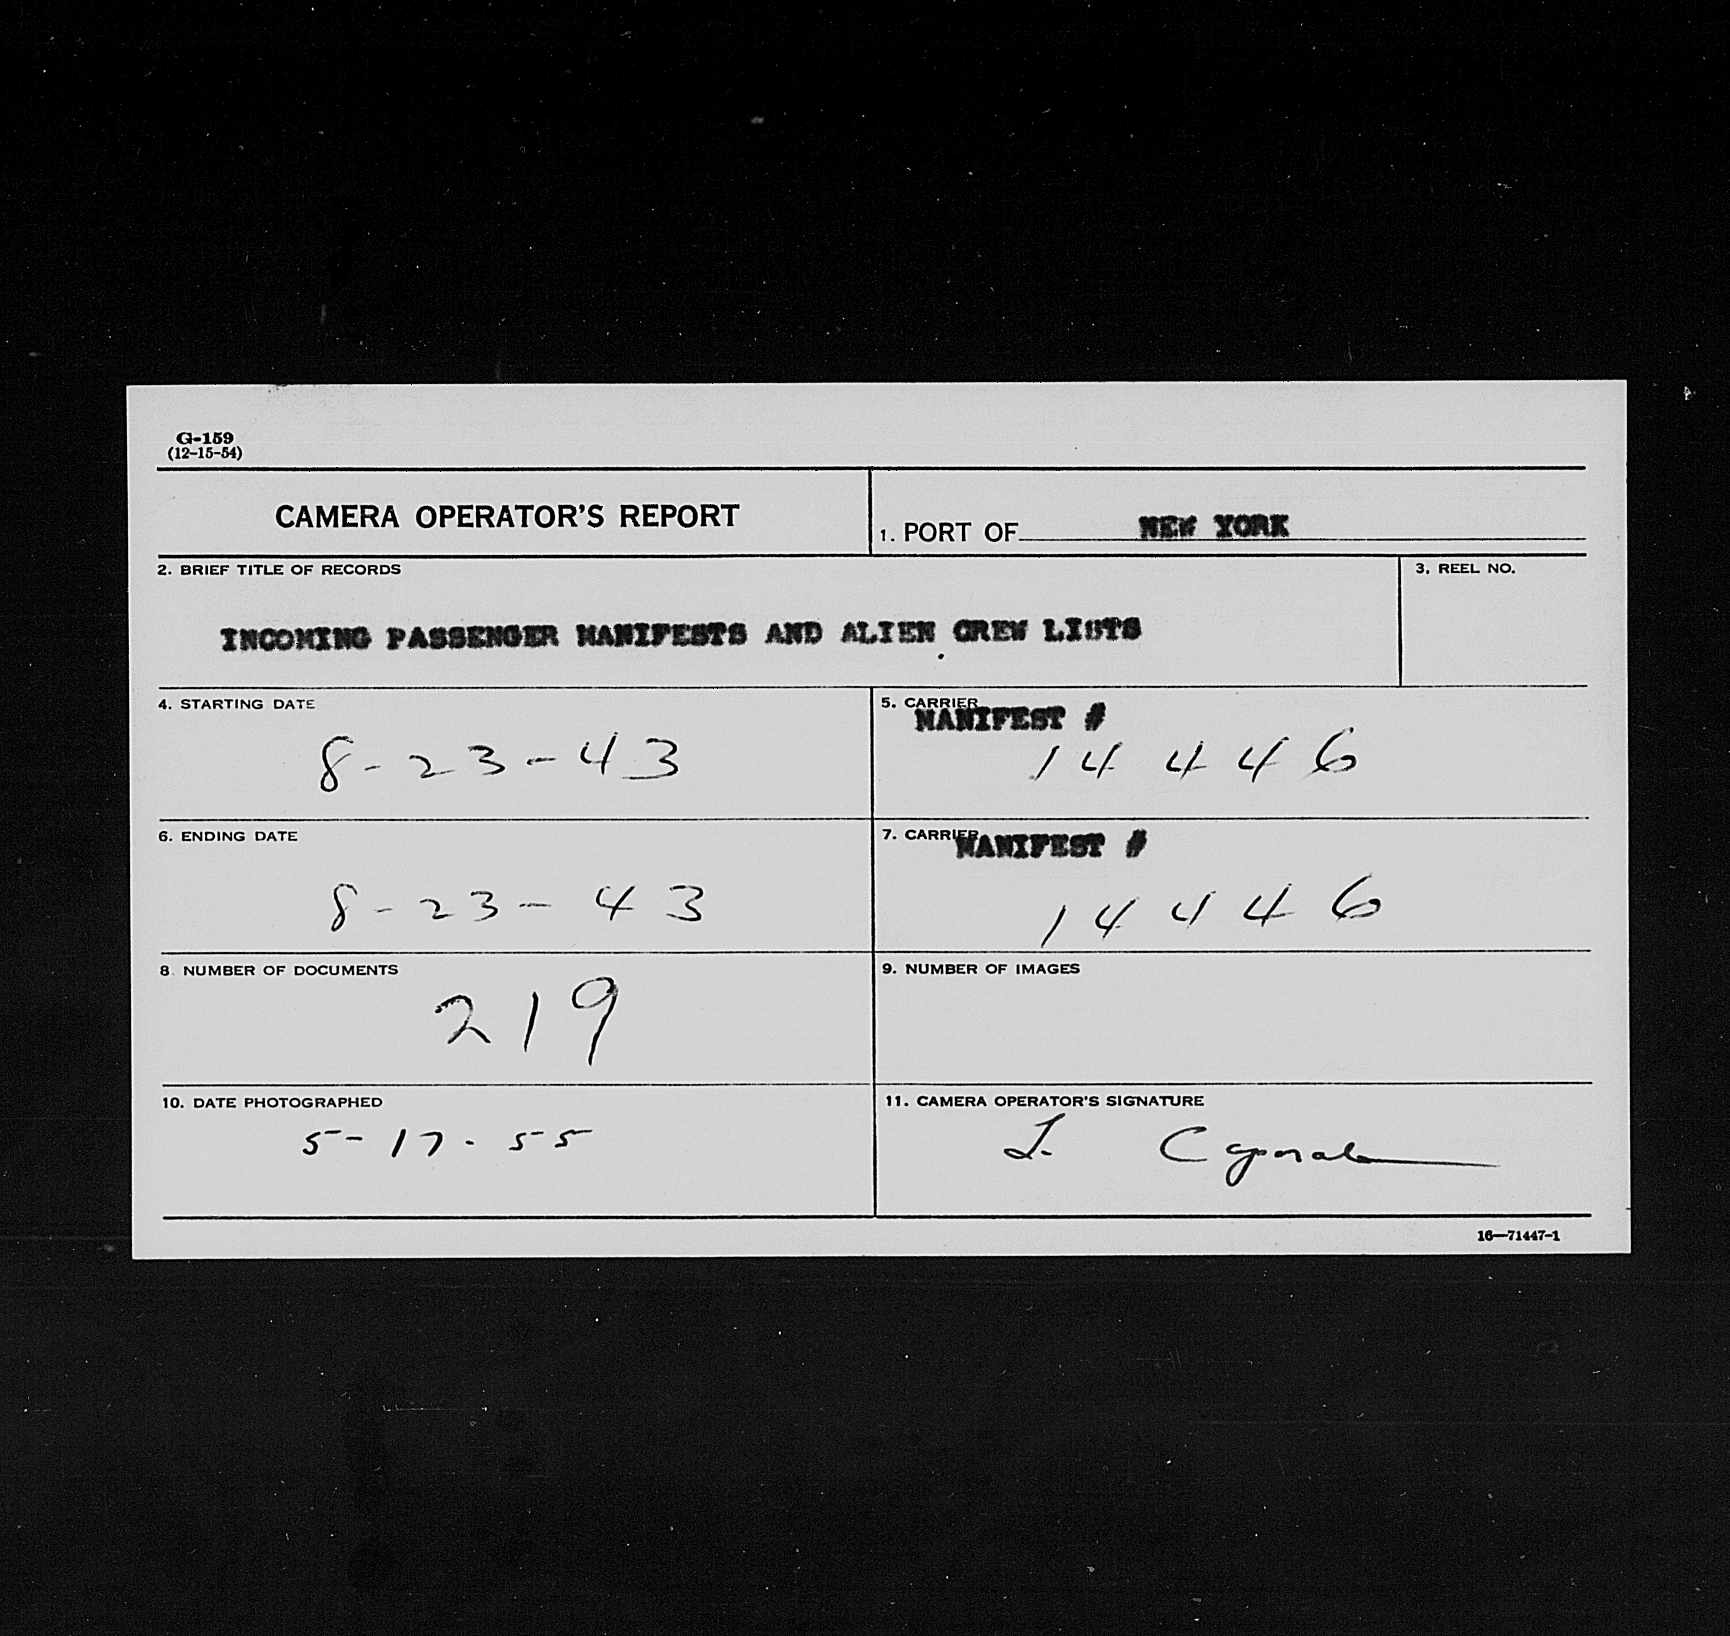 G-159
(12-15-54)
CAMERA OPERATOR'S REPORT
1. PORT OF NEW YORK
2. BRIEF TITLE OF RECORDS
3. REEL NO.
INCOMING PASSENGER MANIFESTS AND ALIEN CREW LISTS
4. STARTING DATE
8-23-43
5. CARRIER
MANIFEST #
14446
6. ENDING DATE
8-23-43
7. CARRIER
MANIFEST #
14446
8. NUMBER OF DOCUMENTS
219
9. NUMBER OF IMAGES
10. DATE PHOTOGRAPHED
5-17-55
11. CAMERA OPERATOR'S SIGNATURE
16—71447-1